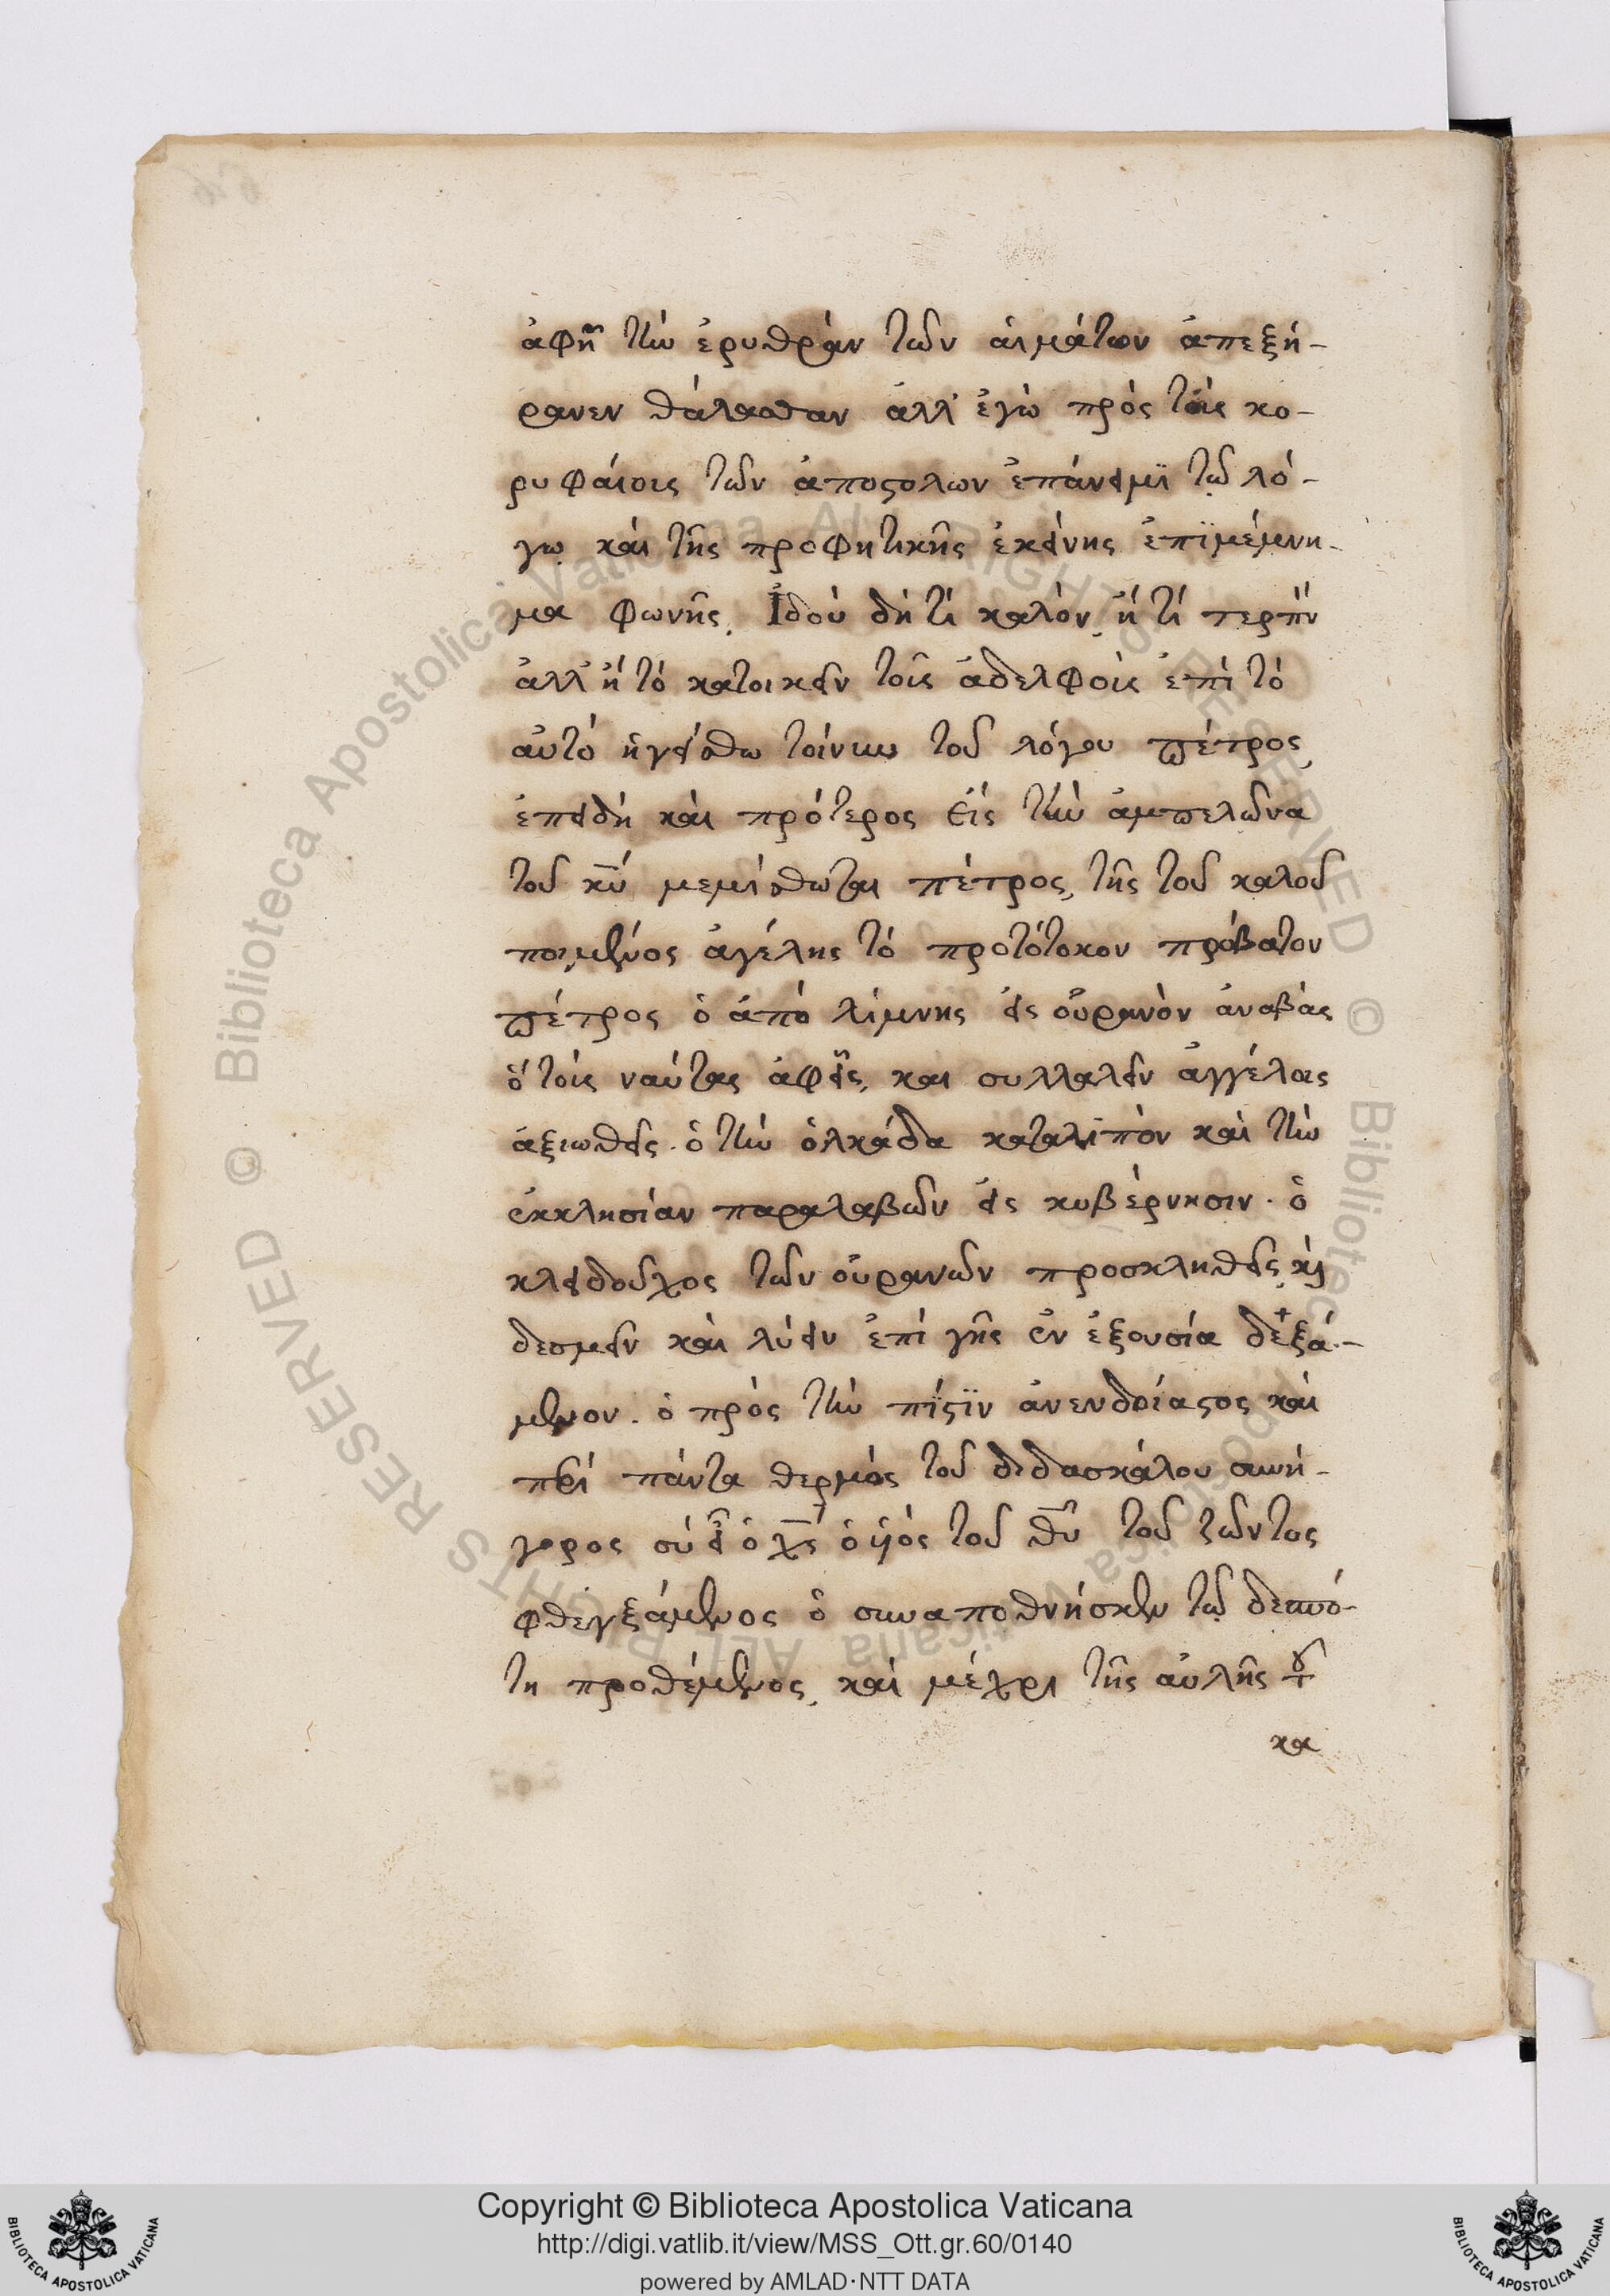 ἀφῆς τὴν ἐρυθρὰν τῶν αἱμάτων ἀπεξή-
ρανεν θάλασσαν ἀλλ' ἐγὼ πρὸς τοῖς κο-
ρυφαίοις τῶν ἀποστόλων ἐπάνειμι τῷ λό-
γω καὶ τῆς προφητικῆς ἐκείνης ἐπιμέμνη-
μα φωνῆς. Ἰδοὺ δὴ τί καλὸν, ἢ τί τερπὸν
ἀλλ' ἢ τὸ κατοικεῖν τοῖς ἀδελφοῖς ἐπὶ τὸ
αὐτό ἡγείσθω τοίνυν τοῦ λόγου πέτρος,
ἐπειδὴ καὶ πρότερος εἰς τὴν ἀμπελῶνα
τοῦ κυ μεμίσθωται πέτρος, τῆς τοῦ καλοῦ
ποιμένος ἀγέλης τὸ προτότοκον πρόβατον
πέτρος ὁ ἀπὸ λίμνης εἰς οὐρανὸν ἀναβὰς
ὁ τοῖς ναύταις ἀφεὶς, καὶ συλλαλεῖν ἀγγέλοις
ἀξιωθείς. ὁ τὴν ὁλκάδα καταλιπὸν καὶ τὴν
ἐκκλησίαν παραλαβῶν εἰς κυβέρνησιν. ὁ
κλειδοῦχος τῶν οὐρανῶν προσκληθεὶς, καὶ
δεσμεῖν καὶ λύειν ἐπὶ γῆς ἐν ἐξουσία δεξά-
μενον. ὁ πρὸς τὴν πίστιν ἀνενδοίαστος καὶ
περὶ πάντα θερμὸς τοῦ διδασκάλου συνή-
γορος σὺ εἶ ὁ χς ὁ υἱὸς τοῦ θυ τοῦ ζῶντος
φθεγξάμενος ὁ συναποθνήσκειν τῷ δεσπό-
τη προθέμενος, καὶ μέχρι τῆς αὐλῆς τοῦ
κα
Copyright © Biblioteca Apostolica Vaticana
http://digi.vatlib.it/view/MSS_Ott.gr.60/0140
powered by AMLAD·NTT DATA